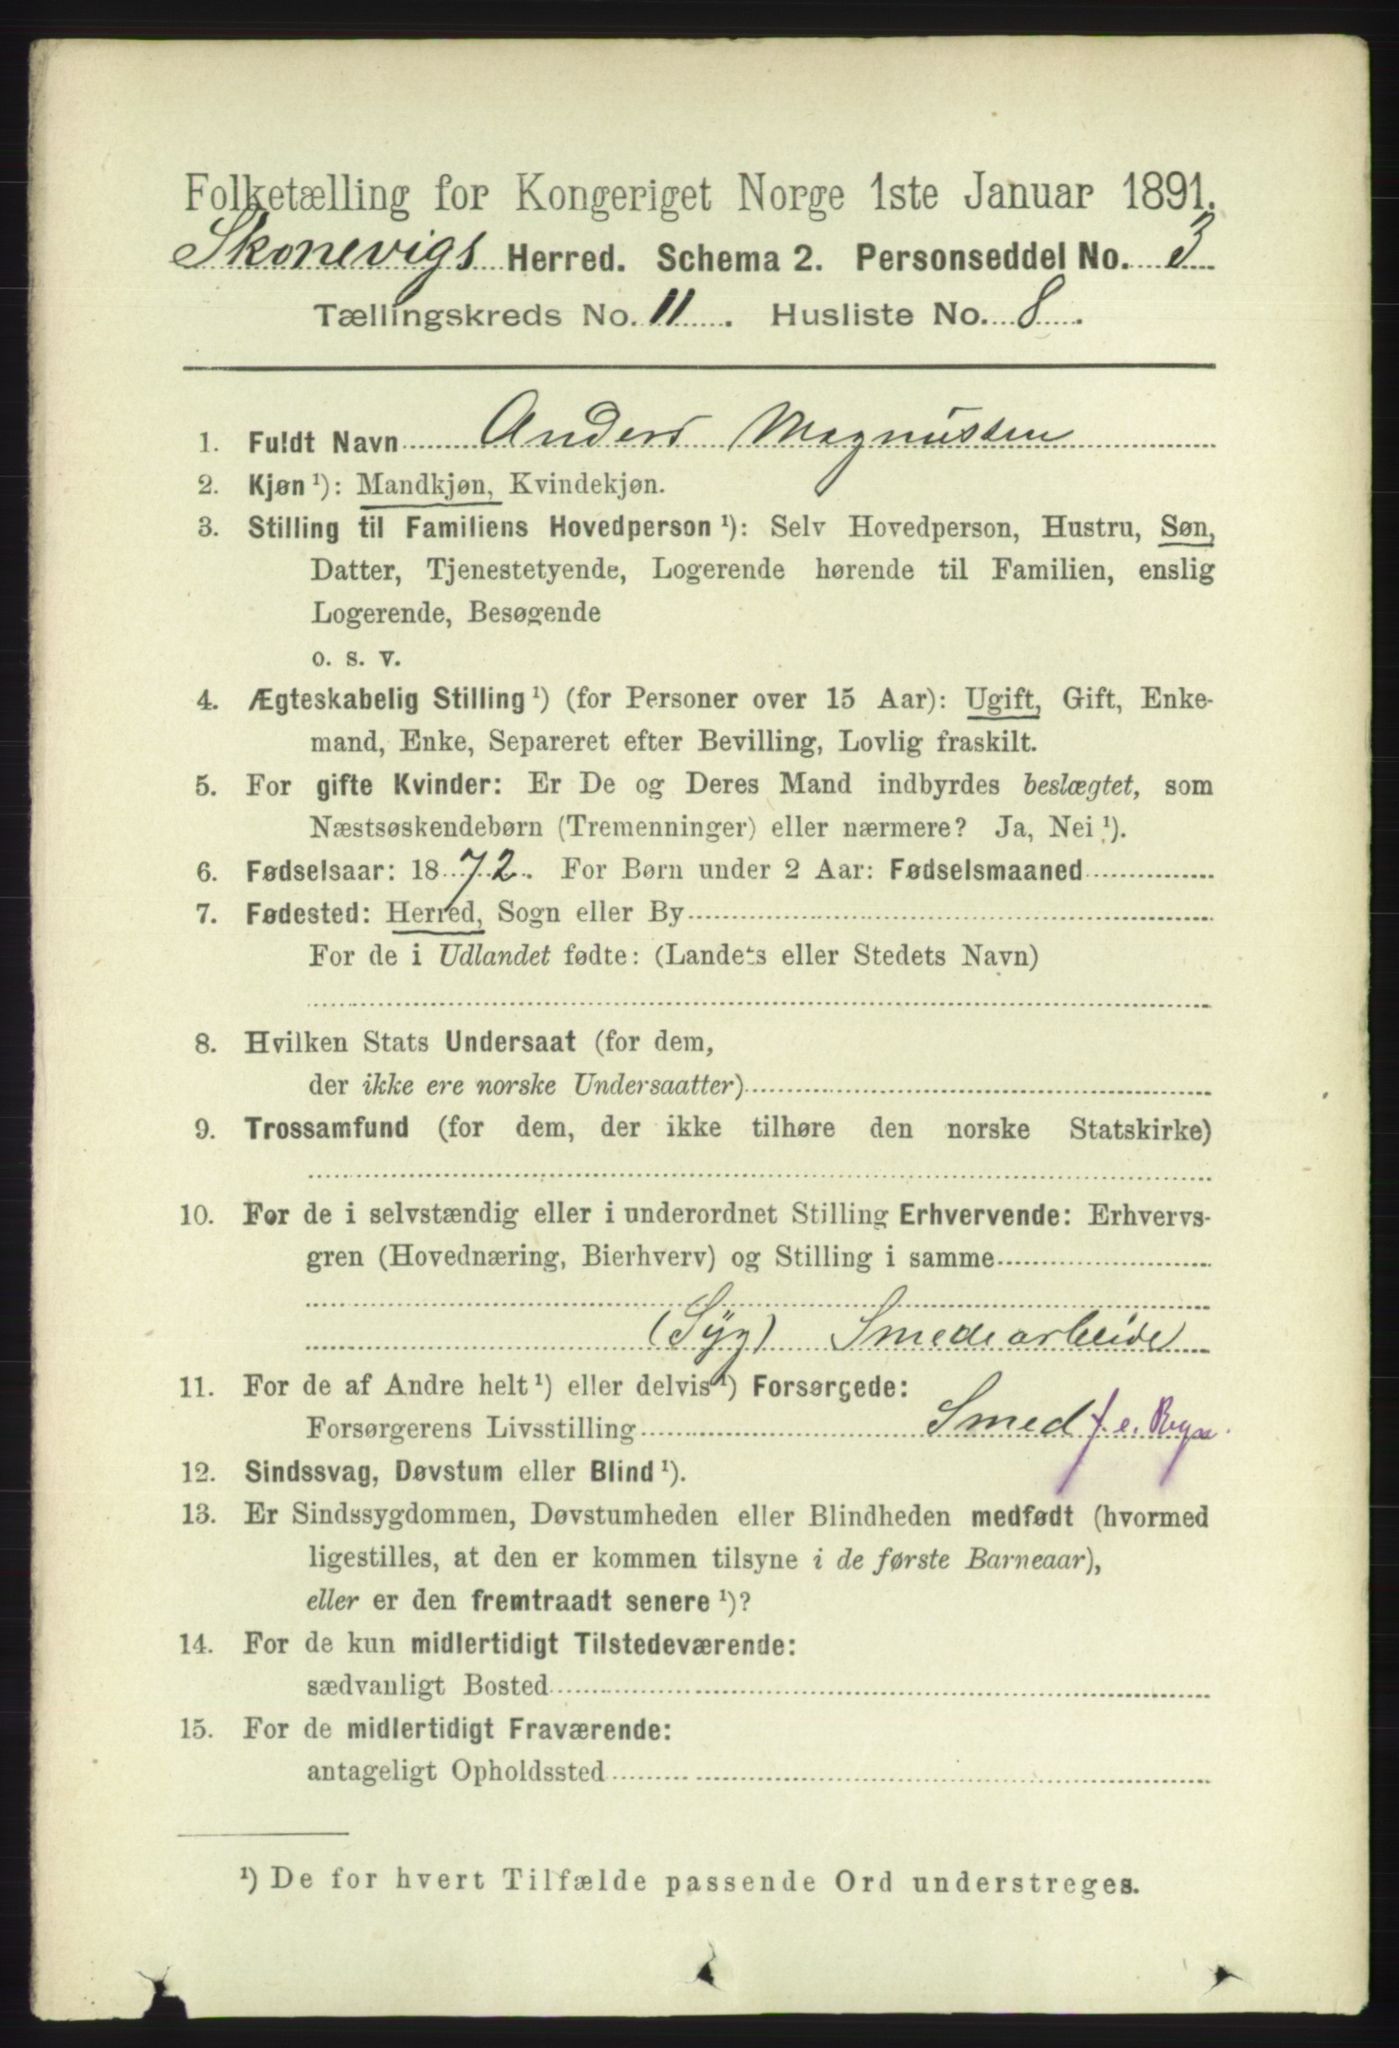 Folketælling for Kongeriget Norge 1ste Januar 1891.
Skonevigs Herred. Schema 2. Personseddel No. 3
Tællingskreds No. 11. Husliste No. 8.
1. Fuldt Navn Anders Magnussen
2. Kjøn ¹): Mandkjøn, Kvindekjøn.
3. Stilling til Familiens Hovedperson ¹): Selv Hovedperson, Hustru, Søn,
Datter, Tjenestetyende, Logerende hørende til Familien, enslig
Logerende, Besøgende
o. s. v.
4. Ægteskabelig Stilling ¹) (for Personer over 15 Aar): Ugift, Gift, Enke-
mand, Enke, Separeret efter Bevilling, Lovlig fraskilt.
5. For gifte Kvinder: Er De og Deres Mand indbyrdes beslægtet, som
Næstsøskendebørn (Tremenninger) eller nærmere? Ja, Nei ¹).
6. Fødselsaar: 1872. For Børn under 2 Aar: Fødselsmaaned
7. Fødested: Herred, Sogn eller By
For de i Udlandet fødte: (Landets eller Stedets Navn)
8. Hvilken Stats Undersaat (for dem,
der ikke ere norske Undersaatter)
9. Trossamfund (for dem, der ikke tilhøre den norske Statskirke)
10. For de i selvstændig eller i underordnet Stilling Erhvervende: Erhvervs-
gren (Hovednæring, Bierhverv) og Stilling i samme
(Syg) Smedearbeide
11. For de af Andre helt ¹) eller delvis ¹) Forsørgede:
Forsørgerens Livsstilling Smed f. e. Regn.
12. Sindssvag, Døvstum eller Blind ¹).
13. Er Sindssygdommen, Døvstumheden eller Blindheden medfødt (hvormed
ligestilles, at den er kommen tilsyne i de første Barneaar),
eller er den fremtraadt senere ¹)?
14. For de kun midlertidigt Tilstedeværende:
sædvanligt Bosted
15. For de midlertidigt Fraværende:
antageligt Opholdssted
¹) De for hvert Tilfælde passende Ord understreges.